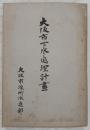 大阪市下水処理計畫
大阪市役所水道部